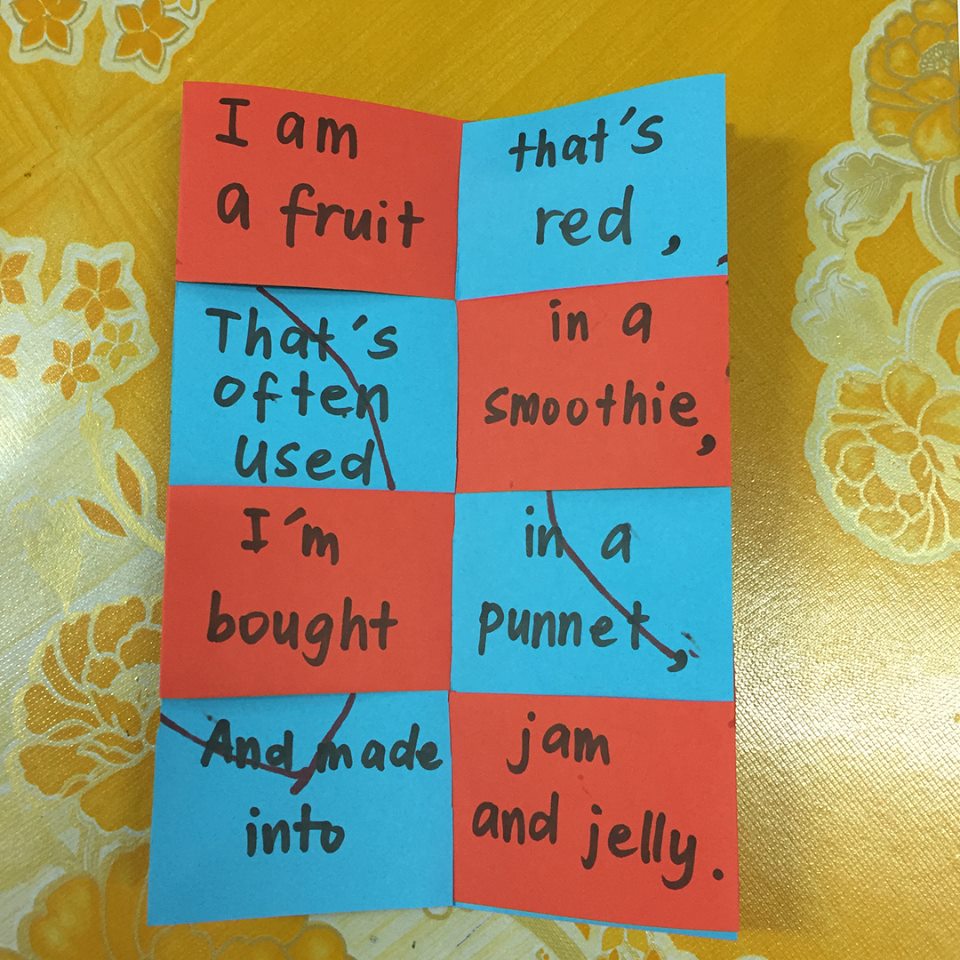 I am
a fruit
that's
red,
That's
often
used
in a
smoothie,
I'm
bought
in a
punnet,
And made
into
jam
and jelly.